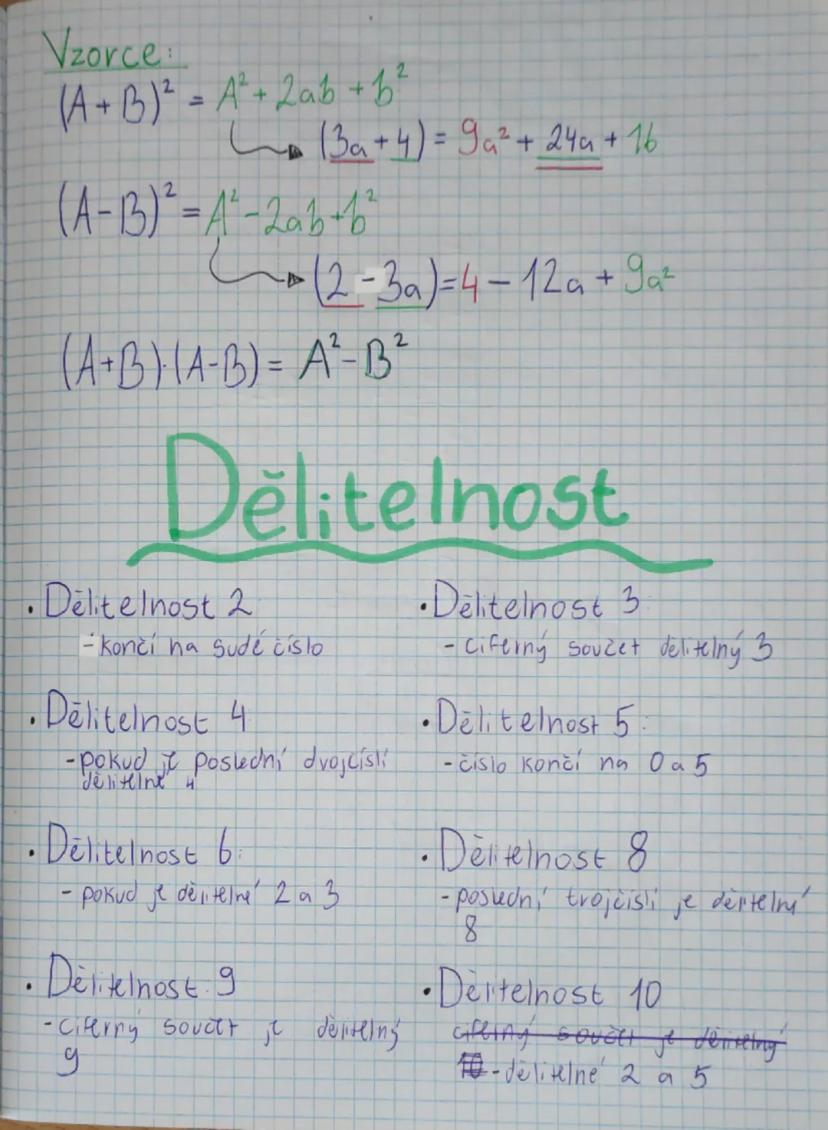 Vzorce:
(A+B)² = A² + 2ab + b²
(3a+4) = 9a² + 24a + 16
(A-B)² = A² - 2ab + b²
(2-3a) = 4 - 12a + 9a²
(A+B)·(A-B) = A² - B²
Dělitelnost
• Dělitelnost 2
- končí na sudé číslo
• Dělitelnost 3
- ciferný součet dělitelný 3
• Dělitelnost 4
- pokud je poslední dvojčíslí
dělitelné 4
• Dělitelnost 5:
- číslo končí na 0 a 5
• Dělitelnost 6:
- pokud je dělitelné 2 a 3
• Dělitelnost 8
- poslední trojčíslí je dělitelné
8
• Dělitelnost 9
- ciferný součet je dělitelný
9
• Dělitelnost 10
ciferný součet je dělitelný
10 - dělitelné 2 a 5